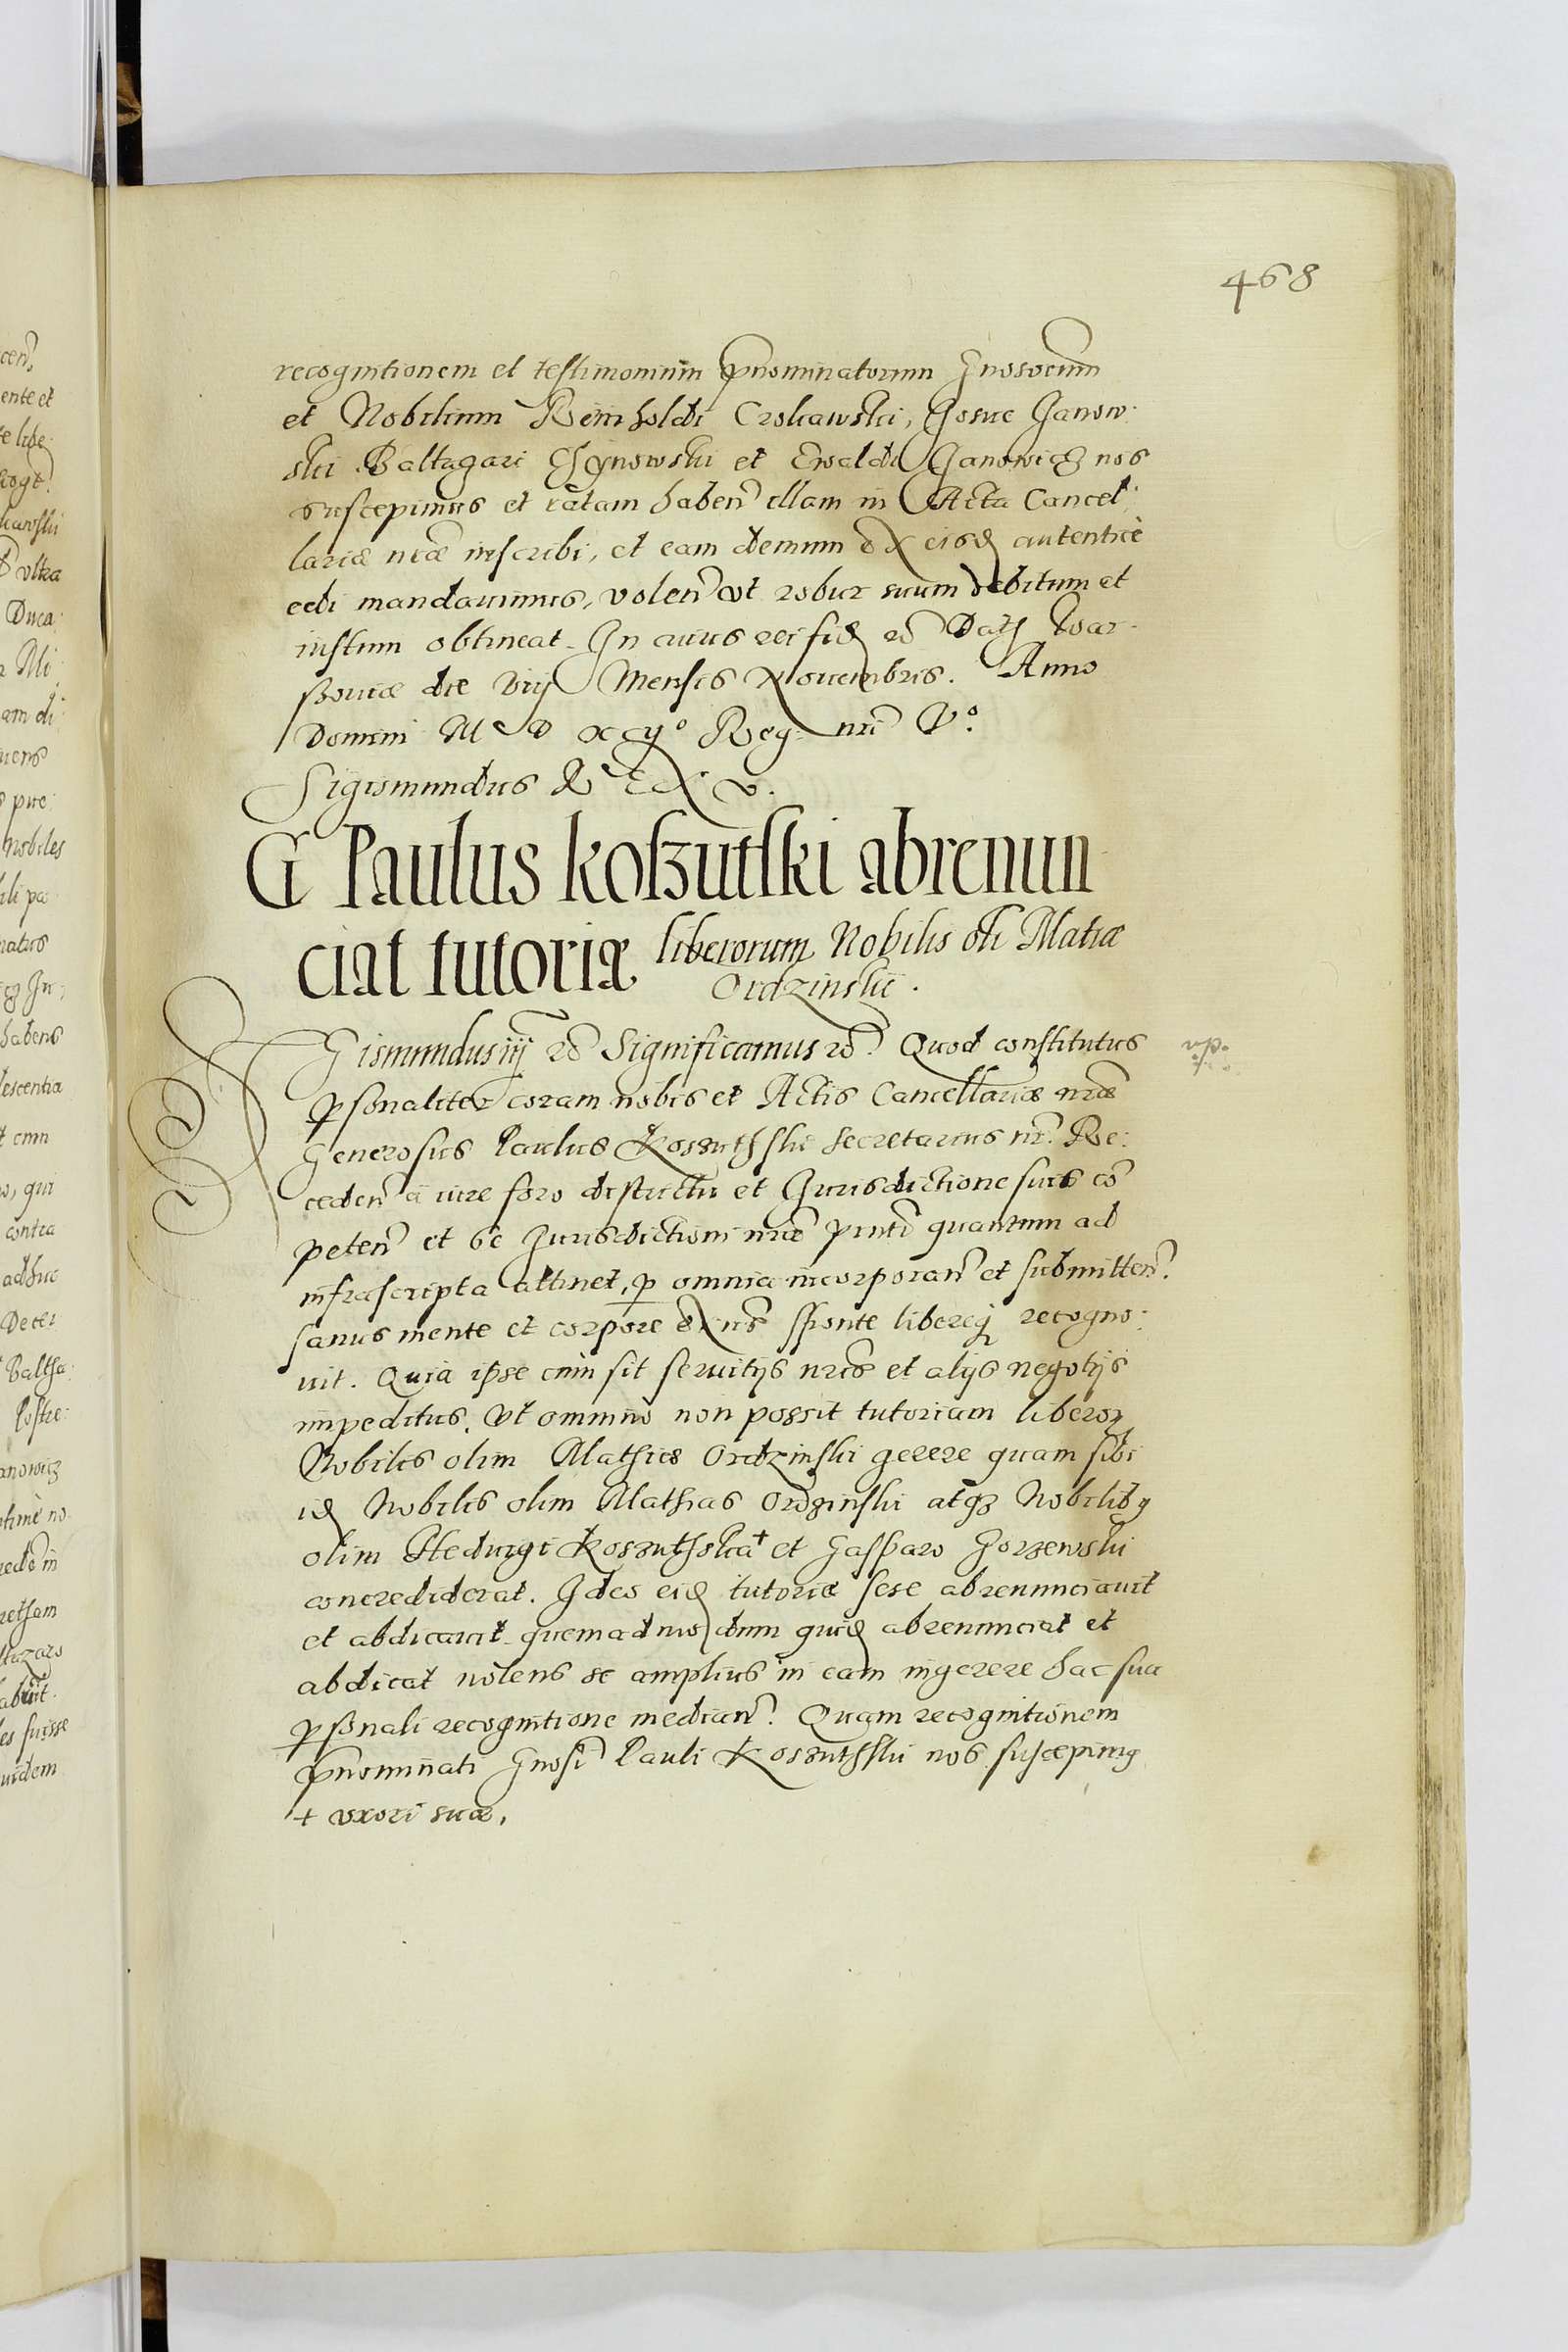 468
recognitionem et testimonium pnominatorum Gnosorum
et Nobilium Reinholdi Crokawski, Josue Janow:
ski Baltazari Chynowski et Ewaldi Janowicz nos
suscepimus et ratam haben illam in Acta Cancel:
lariæ nræ inscribi, et eam demum ex eisd autenticè
edi mandauimus, volen vt robur suum debitum et
iustum obtineat. In cuius rei fid &c Dat War-
ssouiæ die viij Mensis Nouembris. Anno
Domini M D XCijº Reg: nri Vº.
Sigismundus REX
G Paulus koszutski abrenun
ciat tutoriæ liberorum Nobilis oli Matiæ
Ordzinskii.
SIgismundus iij &c Significamus &c. Quod constitutus
psonaliter coram nobis et Actis Cancellariæ nræ
Generosus Paulus Koszuthski Secretarius nr. Re:
ceden à iure foro districtu et Jurisdictione suis cō
peten et se Jurisdictioni nræ pnti quantum ad
infrascripta attinet, p omnia incorporan et submitten.
sanus mente et corpore exns sponte libereq recogno:
uit. Quia ipse cum sit seruitijs nris et alijs negotijs
impeditus, vt omnino non possit tutoriam liberoꝝ
Nobilis olim Mathiæ Ordzinski gerere quam sibi
id Nobilis olim Mathias Ordzinski atqꝫ Nobilibꝰ
olim Heduigi Koszuthska+ et Gasparo Gorzewski
concrediderat. Ideo eid tutoriæ sese abrenunciauit
et abdicauit quemadmodum quid abrenunciat et
abdicat nolens se amplius in eam ingerere hac sua
psonali recognitione median. Quam recognitionem
pnominati Gnosi Pauli Koszuthski nos suscepimꝰ
+ vxori suæ,